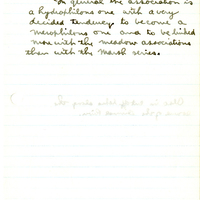 In general the association is
a hydrophilous one with a very
decided tendency to become a
mesophilous one and to be linked
more with the meadow associations
than with the Marsh series.